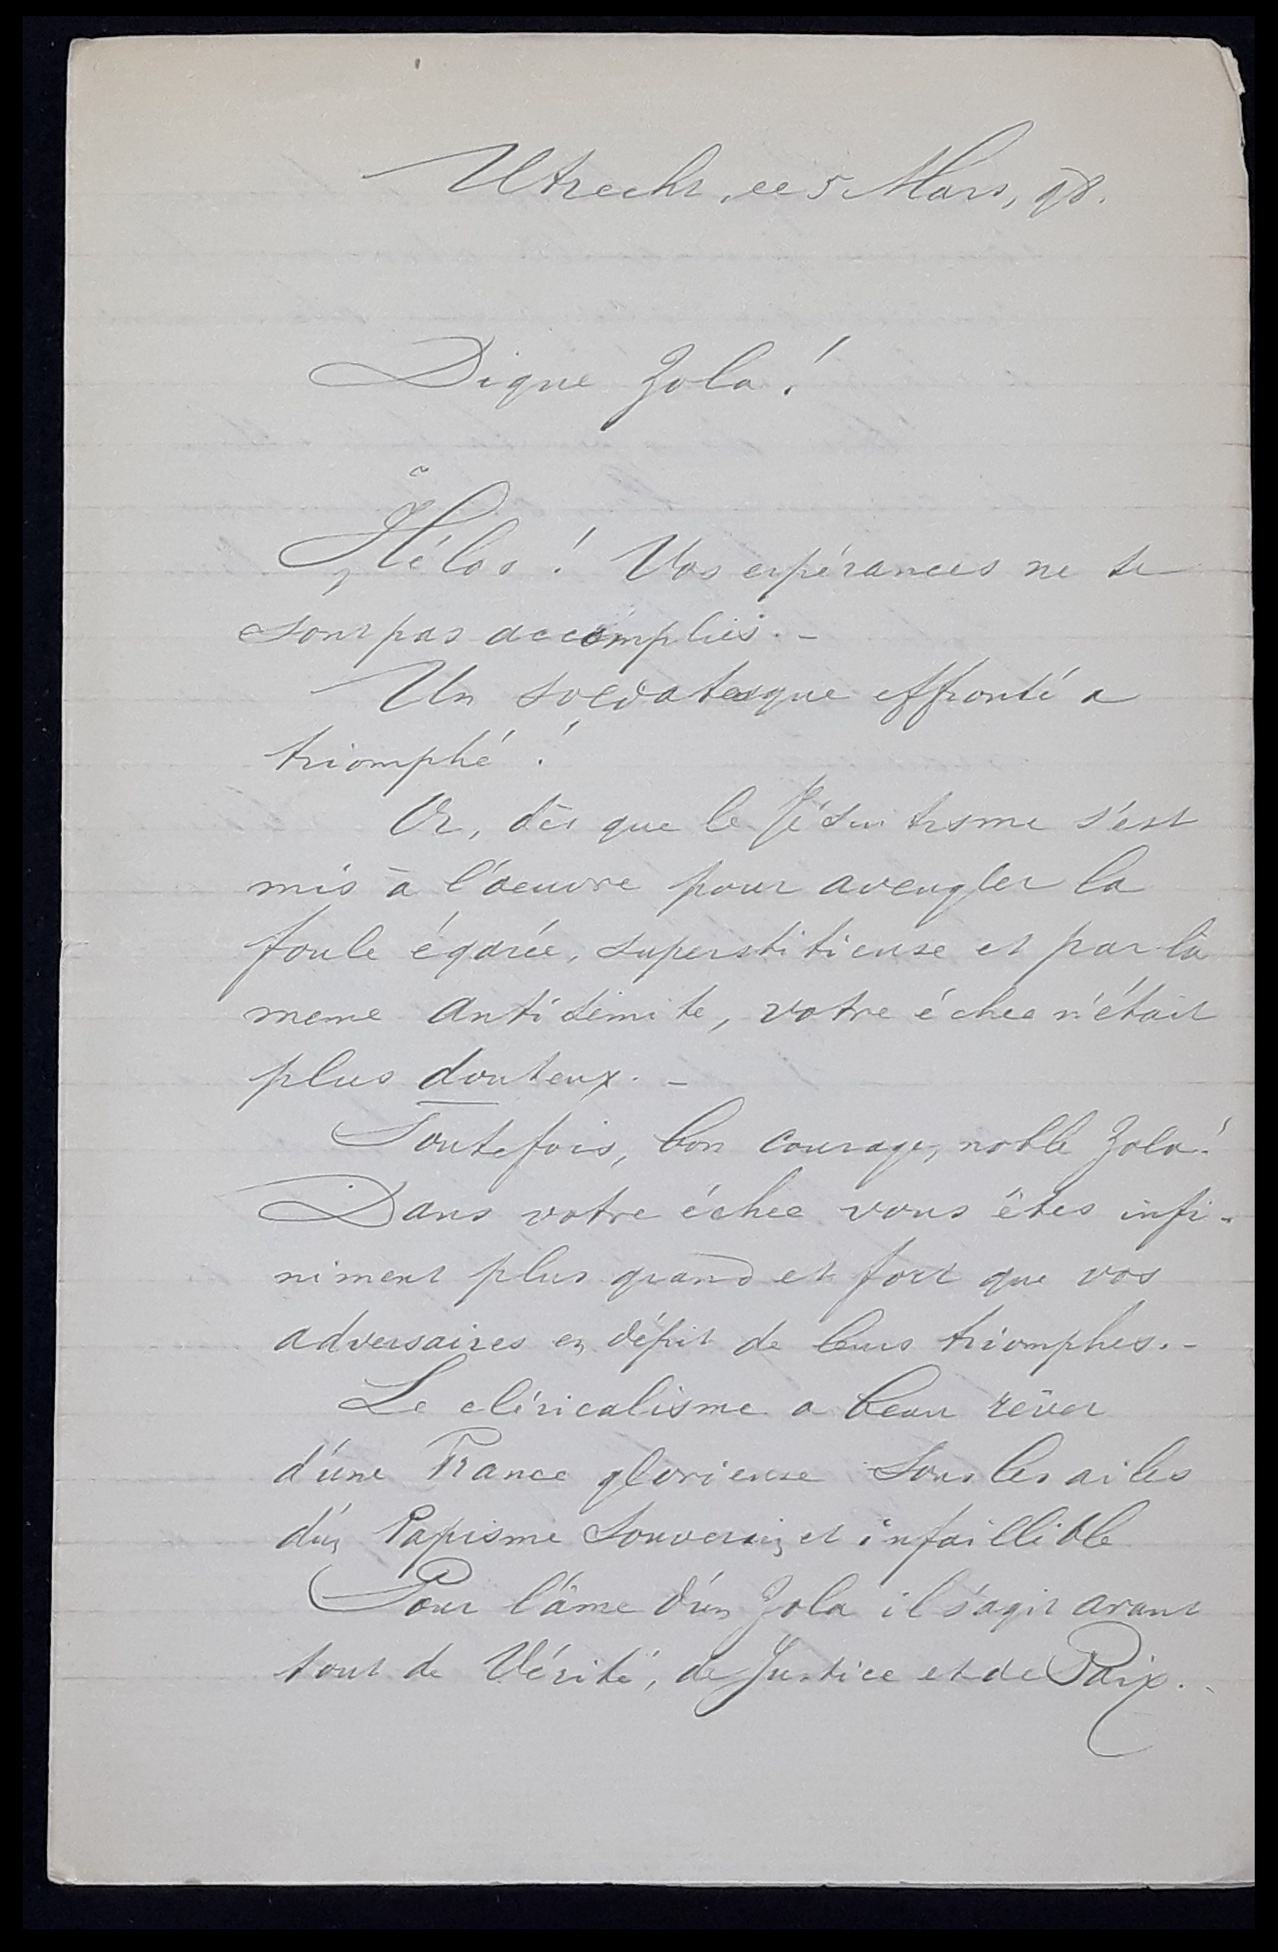 Utrecht, ce 5 Mars, 98.
Digne Zola!
Hélas! Vos espérances ne se
sont pas accomplies. -
Un soldatesque effronté a
triomphé!
Or, dès que le Jésuitisme s'est
mis à l'oeuvre pour aveugler la
foule égarée, superstitieuse et par là
meme antisémite, votre échec n'était
plus douteux. -
Toutefois, bon courage, noble Zola!
Dans votre échec vous êtes infi-
niment plus grand et fort que vos
adversaires en dépit de leurs triomphes. -
Le cléricalisme a beau rêver
d'une France glorieuse sous les ailes
d'un Papisme souverain et infaillible
Pour l'âme d'un Zola il s'agit avant
tout de Vérité, de Justice et de Paix. -